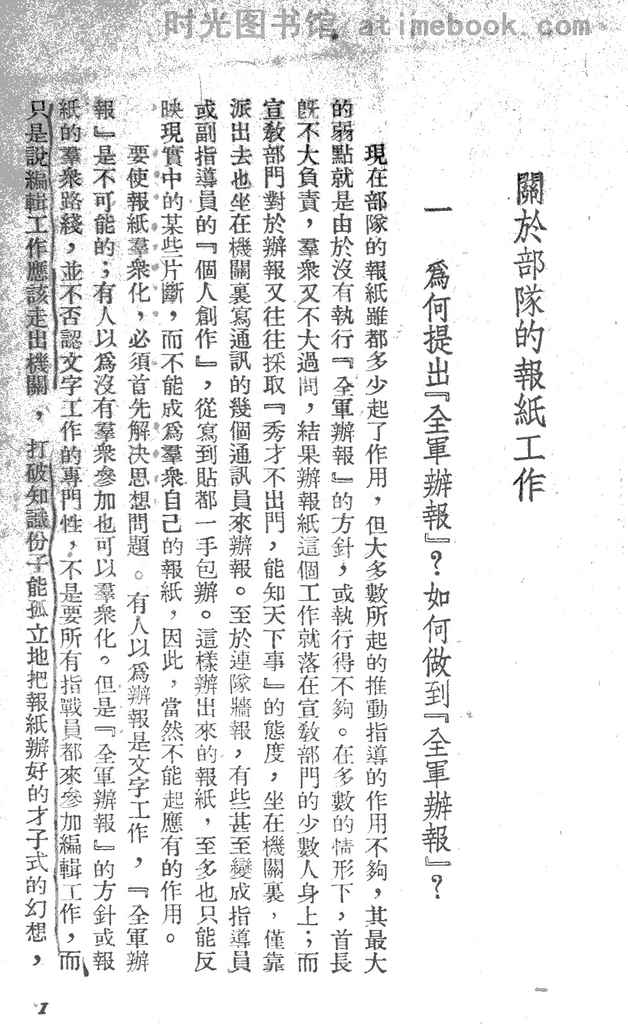 时光图书馆 atimebook.com
關於部隊的報紙工作
一　爲何提出『全軍辦報』？如何做到『全軍辦報』？
現在部隊的報紙雖都多少起了作用，但大多數所起的推動指導的作用不夠，其最大
的弱點就是由於沒有執行『全軍辦報』的方針，或執行得不夠。在多數的情形下，首長
旣不大負責，羣衆又不大過問，結果辦報紙這個工作就落在宣敎部門的少數人身上；而
宣敎部門對於辦報又往往採取『秀才不出門，能知天下事』的態度，坐在機關裏，僅靠
派出去也坐在機關裏寫通訊的幾個通訊員來辦報。至於連隊牆報，有些甚至變成指導員
或副指導員的『個人創作』，從寫到貼都一手包辦。這樣辦出來的報紙，至多也只能反
映現實中的某些片斷，而不能成爲羣衆自己的報紙，因此，當然不能起應有的作用。
要使報紙羣衆化，必須首先解決思想問題。有人以爲辦報是文字工作，『全軍辦
報』是不可能的；有人以爲沒有羣衆參加也可以羣衆化。但是『全軍辦報』的方針或報
紙的羣衆路綫，並不否認文字工作的專門性，不是要所有指戰員都來參加編輯工作，而
只是說編輯工作應該走出機關，打破知識份子能孤立地把報紙辦好的才子式的幻想，
一
1